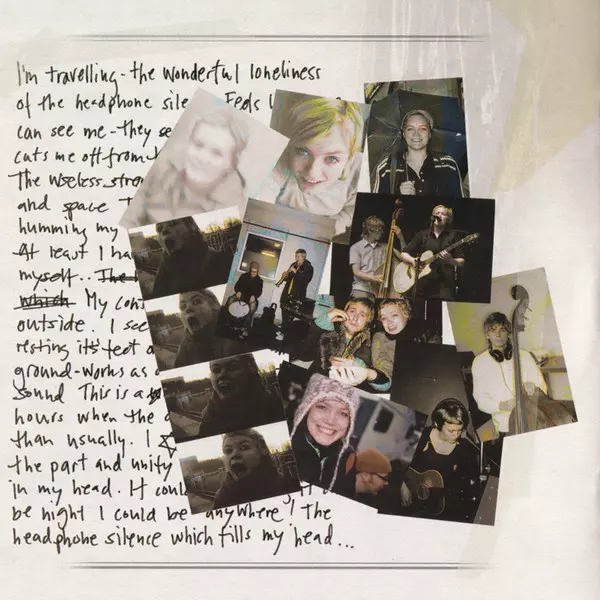 I'm travelling - the wonderful loneliness
of the headphone sile Feels
can see me - they se
cuts me off from
The useless stro
and space
humming my
At least I ha
myself.. The
which My con
outside. I see
resting it's feet o
ground-works as
sound This is a
hours when the
than usually. I
the part and unify
in my head. It coul
be night I could be anywhere! The
headphone silence which fills my head...